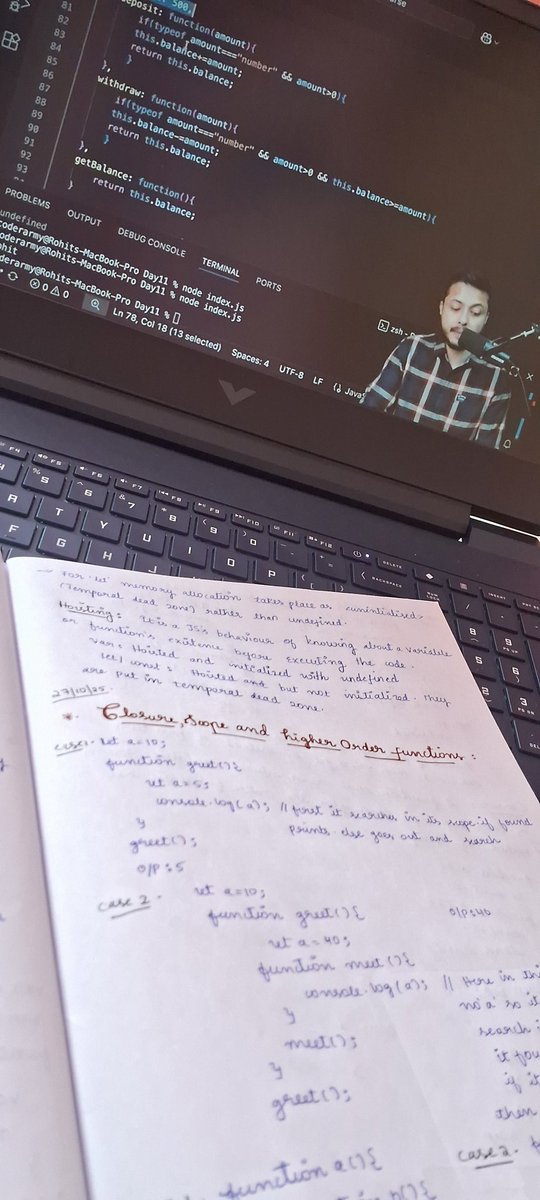 rse
500,
81
82
83
84
85
86
87
88
89
90
91
92
93
deposit: function(amount){
if(typeof amount==="number" && amount>0){
this.balance+=amount;
return this.balance;
}
},
withdraw: function(amount){
if(typeof amount==="number" && amount>0 && this.balance>=amount){
this.balance-=amount;
return this.balance;
}
},
getBalance: function(){
return this.balance;
}
PROBLEMS OUTPUT DEBUG CONSOLE TERMINAL PORTS
undefined
coderarmy@Rohits-MacBook-Pro Day11 % node index.js
oderarmy@Rohits-MacBook-Pro Day11 % node index.js
ohit
derarmy@Rohits-MacBook-Pro Day11 %
zsh
0 0
Ln 78, Col 18 (13 selected) Spaces: 4 UTF-8 LF {} Java
F4 F5 F6 F7 F8 F9 F10 F11 F12 DELETE
% 5 ^ 6 & 7 * 8 ( 9 ) 0 - + = BACKSPACE
R T Y U I O P
F G H J K
→ For 'let' memory allocation takes place as <uninitialised>
(Temporal dead zone) rather than undefined.
Hoisting: It is a JS's behaviour of knowing about a variable
or function's existence before executing the code.
var: Hoisted and initialized with undefined
let/const: Hoisted but not initialized. They
are put in temporal dead zone.
27/10/25
* Closure, Scope and higher Order functions:
case1. let a=10;
function greet(){
let a=5;
console.log(a); // first it searches in its scope if found
prints else goes out and search
}
greet();
O/P: 5
case 2. let a=10;
function greet(){ O/P: 40
let a=40;
function meet(){
console.log(a); // Here in thi
no 'a' so it
}
search i
meet();
it fou
}
if it
greet();
then
case 2.
function a(){